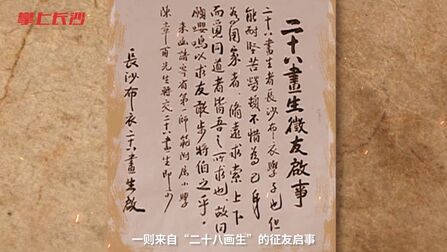 掌上长沙
二十八畫生徵友啟事
二十八畫生者長沙布衣學子也但
能耐堅苦勞頓不惜為己身
為國家者脩遠求索上下
而覓同道者皆吾之所求也故曰
願嚶鳴以求友敢步將伯之乎
來函請寄省第一師範附屬小學
陳章甫先生轉交二十八畫生即可
長沙布衣二十八畫生啟
一则来自“二十八画生”的征友启事